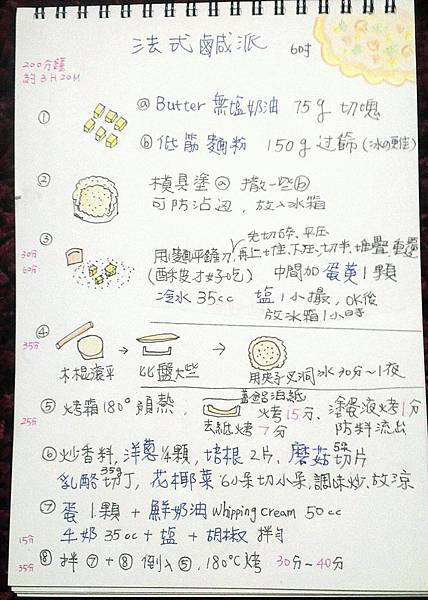 法式鹹派 6吋
200分鐘
約3H20M
① ⓐ Butter 無塩奶油 75g 切塊
ⓑ 低筋麵粉 150g 过篩(冰の更佳)
② 模具塗ⓐ 撒一些ⓑ
可防沾边,放入冰箱
③ 先切碎、平压
30分 用麵平鏟刀,再上十堆、下压、切半、堆疊、重覆
60分 (酥皮才好吃) 中間加 蛋黄1顆
冷水35cc 塩1小撮,OK後
放冰箱1小時
④
35分 木棍滾平 比盤大些 用夾子叉洞 冰30分~1夜
⑤ 烤箱180°預熱, 蓋鋁泊紙 烤15分、塗蛋液烤1分
25分 去紙烤7分 防料流出
⑥ 炒香料,洋蔥¼顆,培根2片,磨菇5朵切片
乳酪35g切丁,花椰菜6小朵切小朵,調味炒,放涼
⑦ 蛋1顆+鮮奶油 whipping cream 50cc
15分 牛奶35cc+塩+胡椒 拌勻
35分 ⑧ 拌⑦+⑥ 倒入⑤,180°C烤 30分~40分